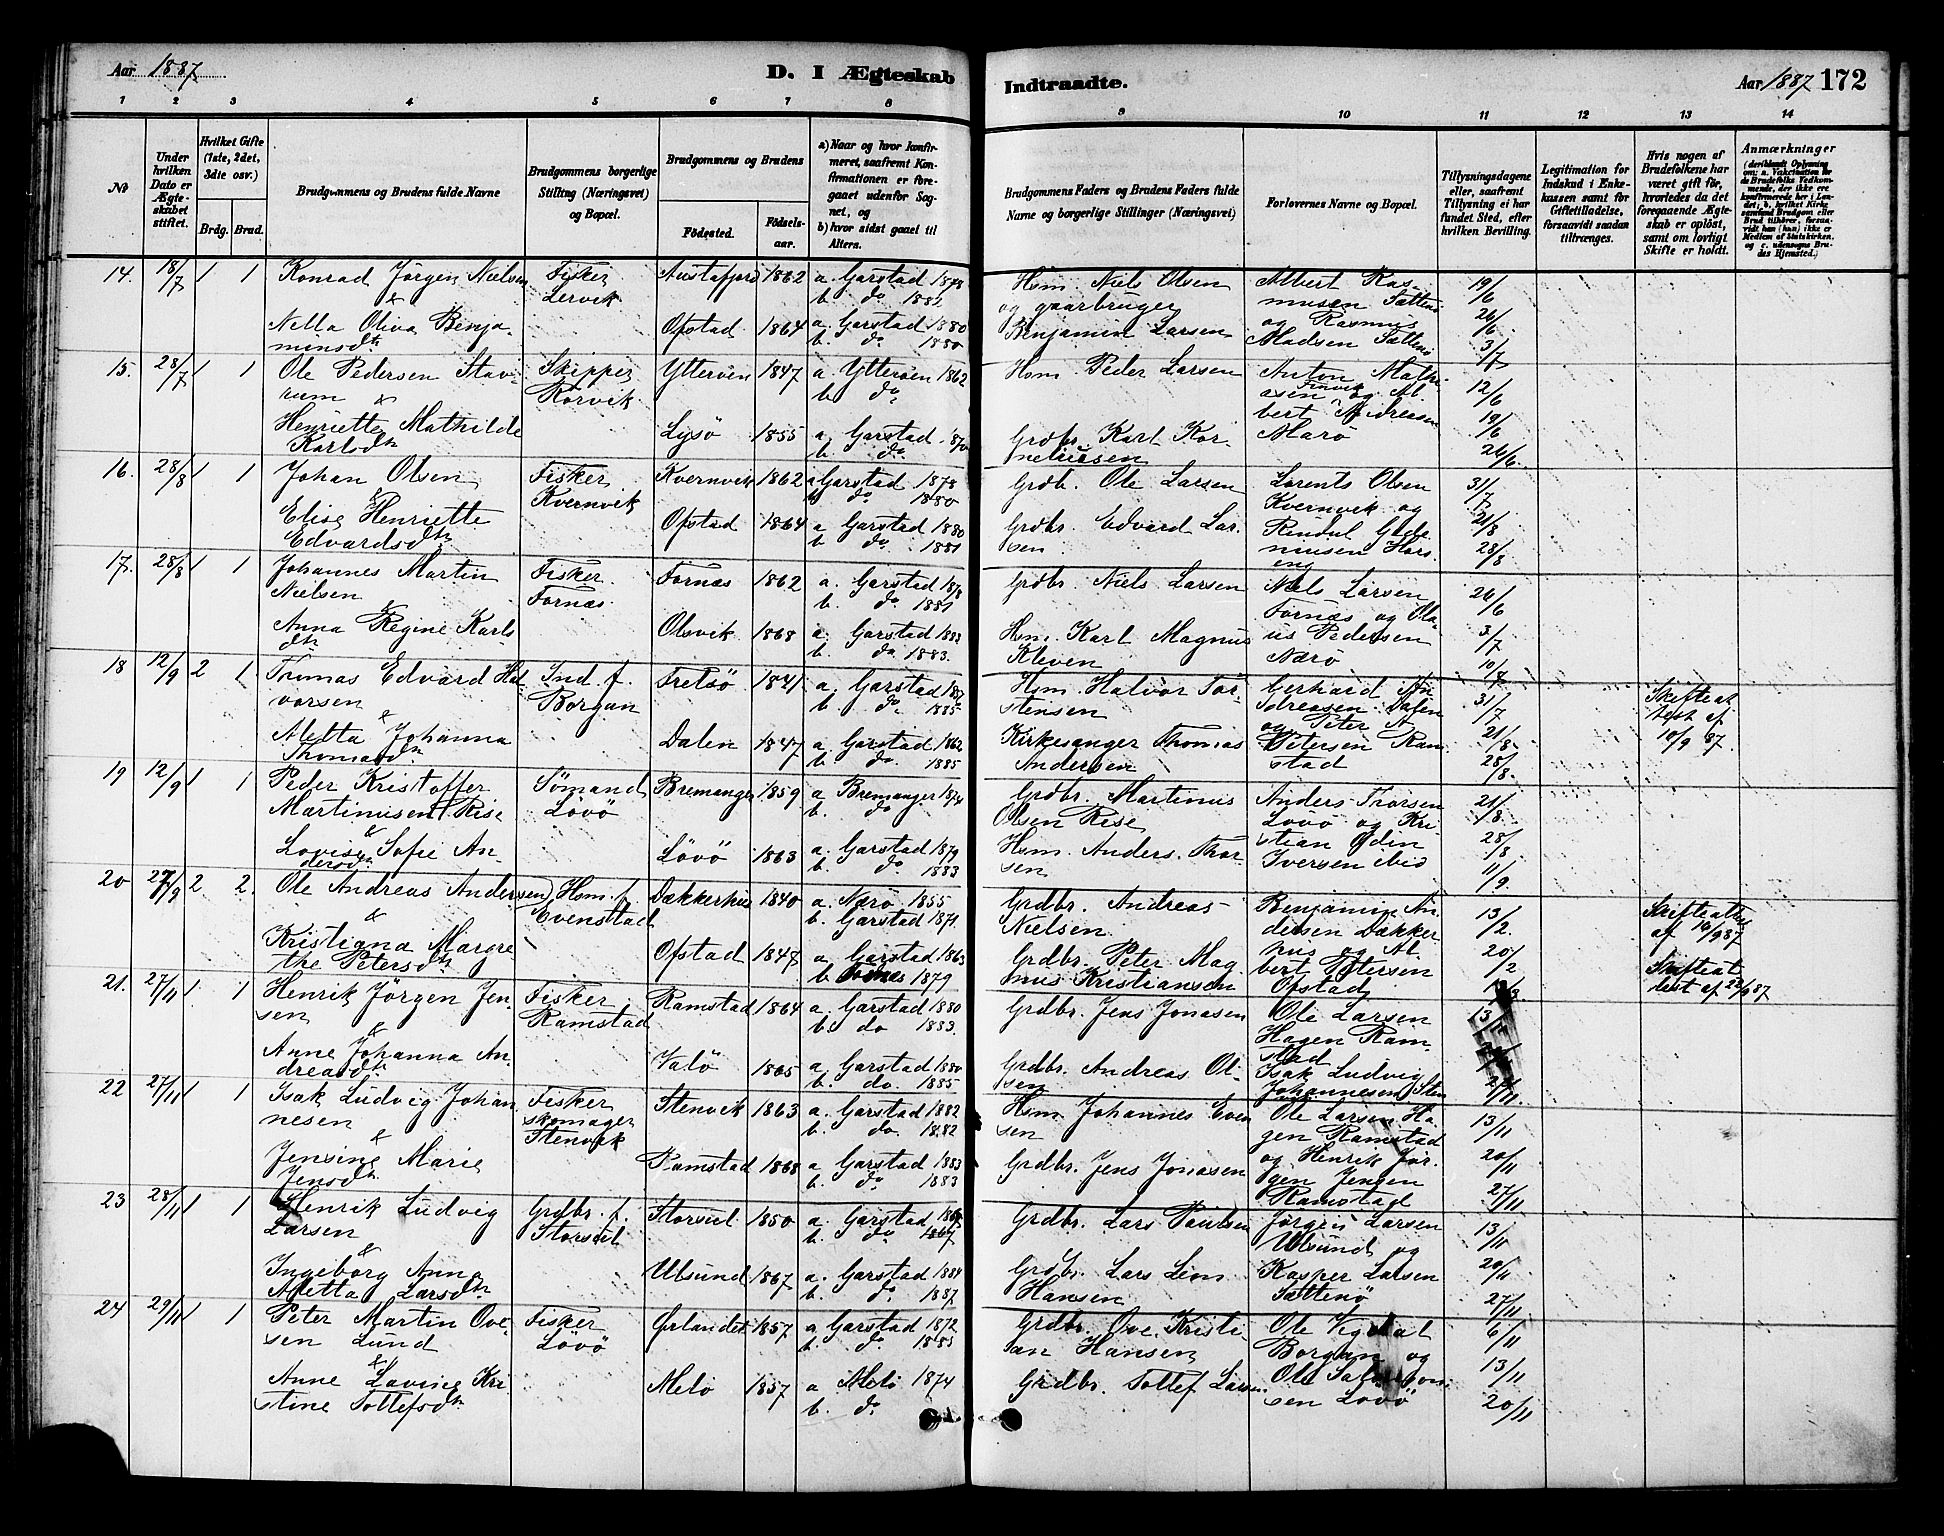 Aar 1887
D. I Ægteskab Indtraadte.
Aar 1887 172
1 2 3 4 5 6 7 8 9 10 11 12 13 14
No
Under hvilken Dato er Ægteskabet stiftet.
Hvilket Gifte (1ste, 2det, 3die osv.)
Brdg. Brud.
Brudgommens og Brudens fulde Navne
Brudgommens borgerlige Stilling (Næringsvei) og Bopæl.
Brudgommens og Brudens
Födested. Födselsaar.
a) Naar og hvor konfirmeret, saafremt Konfirmationen er foregaaet udenfor Sognet, og
b) hvor sidst gaaet til Alters.
Brudgommens Faders og Brudens Faders fulde Navne og borgerlige Stillinger (Næringsvei)
Forlovernes Navne og Bopæl.
Tillysningsdagene eller, saafremt Tillysning ei har fundet Sted, efter hvilken Bevilling.
Legitimation for Indskud i Enkekassen samt for Giftetilladelse, forsaavidt saadan tiltrænges.
Hvis nogen af Brudefolkene har været gift för, hvorledes da det foregaaende Ægteskab er oplöst, samt om lovligt Skifte er holdt.
Anmærkninger
14. 18/7 1 1 Konrad Jörgen Nielsen & Fisker Lervik Austafjord 1862 a. Garstad 1878 b. do 1882 Hsm. Niels Olsen og gaarbruger Albert Rasmusen Sættenö 19/6
Nella Oliva Benjaminsdtr Ofstad 1864 a. Garstad 1880 b. do 1880 Benjamin Larsen og Rasmus Madsen Sættenö 26/6 3/7
15. 28/7 1 1 Ole Pedersen Stavrum & Skipper Rörvik Ytteröen 1847 a. Ytteröen 1862 b. do. Hsm. Peder Larsen Anton Mathiasen Finvik og Albert Andreasen Marö 12/6
Henriette Mathilde Karlsdtr Lysö 1855 a. Garstad 1870 b. do. Grdbr. Karl Korneliussen 19/6 26/6.
16. 28/8 1 1 Johan Olsen & Fisker Kvernvik Kvernvik 1862 a Garstad 1878 b do 1880 Grdb. Ole Larsen Lorents Olsen Kvernvik og 31/7
Elise Henriette Edvardsdtr Ofstad 1864 a. Garstad 1880 b. do. 1881 Grdbr. Edvard Larsen 21/8 28/8
17. 28/8 1 1 Johannes Martin Nielsen & Fisker Fornæs Fornæs 1862 a. Garstad 1878 b. do 1881 Grdbr. Niels Larsen Niels Larsen Fornæs og Olaus Pedersen Nærö 26/6
Anna Regine Karlsdtr Olsvik 1868 a. Garstad 1883 b. do 1883. Hsm. Karl Magnus Kleven 3/7 10/7
18 12/9 2 1 Tomas Edvard Halvorsen & Ind. f. Borgan Fretsö 1821 a. Garstad b. do 1885 Hsm. Halvor Torstensen Gerhard Andreasen Dalen og Peter A Petersen Ramstad 31/7 Skifteattest af 10/9 87.
Metta Johanna Thomasdtr Dalen 1847 a. Garstad 1862 b. do. 1885 Kirkesanger Thomas Andersen 21/8 28/8.
19 12/9 1 1 Peder Kristoffer Martinusen Rise & Sömand Lövö Bremanger 1859 a Bremanger 1874 b. do Grdbr. Martinus Olsen Rise Anders Thorsen Lovö og Kristian Odin Iversen 21/8
Lovise Sofie Andersdtr Lövö 1863 a. Garstad 1879 b. do 1883 Hsm. Anders Thorsen 28/8 11/9
20 27/9 2. 2. Ole Andreas Andersen & Hsm. f. Evenstad Dækkerhus 1840 a. Nærö 1855 b. Garstad 1871. Grdbr. Andreas Nielsen Benjamin Andersen Dækkerhus og Albert Petersen Ofstad 13/2. Skifteattest af 10/9 87
Kristiana Margrethe Petersdtr Ofstad 1847 a Garstad 1863 b. 1879 Grdbr. Peter Magnus Kristiansen 20/2 Skifteattest af 87
21. 27/11 1. 1 Henrik Jörgen Jensen & Fisker Ramstad Ramstad 1864 a. Garstad 1880 b. do 1883. Grdbr. Jens Jonasen Ole Larsen Hagen Ramstad 13/11
Anne Johanna Andreasdtr Valö 1865 a. Garstad 1880 b. do. 1885 Grdbr. Andreas Olsen Isak Ludvig Johannesen 27/11
22 27/11 1 1 Isak Ludvig Johannesen & Fisker skomager Stenvik Stenvik 1863 a. Garstad 1882 b. do. 1882 Hsm Johannes Evensen Ole Larsen Hagen Ramstad 13/11
Jensine Marie Jensdtr Ramstad 1868 a. Garstad 1883 b. do 1883 Grdbr. Jens Jonasen og Henrik Jörgen Jensen Ramstad 20/11 27/11
23 28/11 1 1 Henrik Ludvig Larsen & Grdbr. f. Storsul Storsul 1850 a. Garstad b. do 1867 Grdbr. Lars Paulsen Jörgen Larsen Ulsund og 13/11
Ingeborg Anna Metta Larsdtr Ulsund 1867 a. Garstad 1884 b. do. 1887 Grdbr. Lars Leon Hansen Kasper Larsen Sættenö 20/11 27/11
24 29/11 1 1 Peter Martin Ovesen Lund & Fisker Lövö Örlandet 1857 a Garstad 1872 b. do 1885 Grdbr. Ove Kristian Hansen Ole Vigdal Borgan og 6/11
Anne Lavine Kristine Tollefsdtr Melö 1857 a Melö 1874 b. do. Grdbr. Tollef Larsen Ole Salomonsen Lövö 13/11 20/11